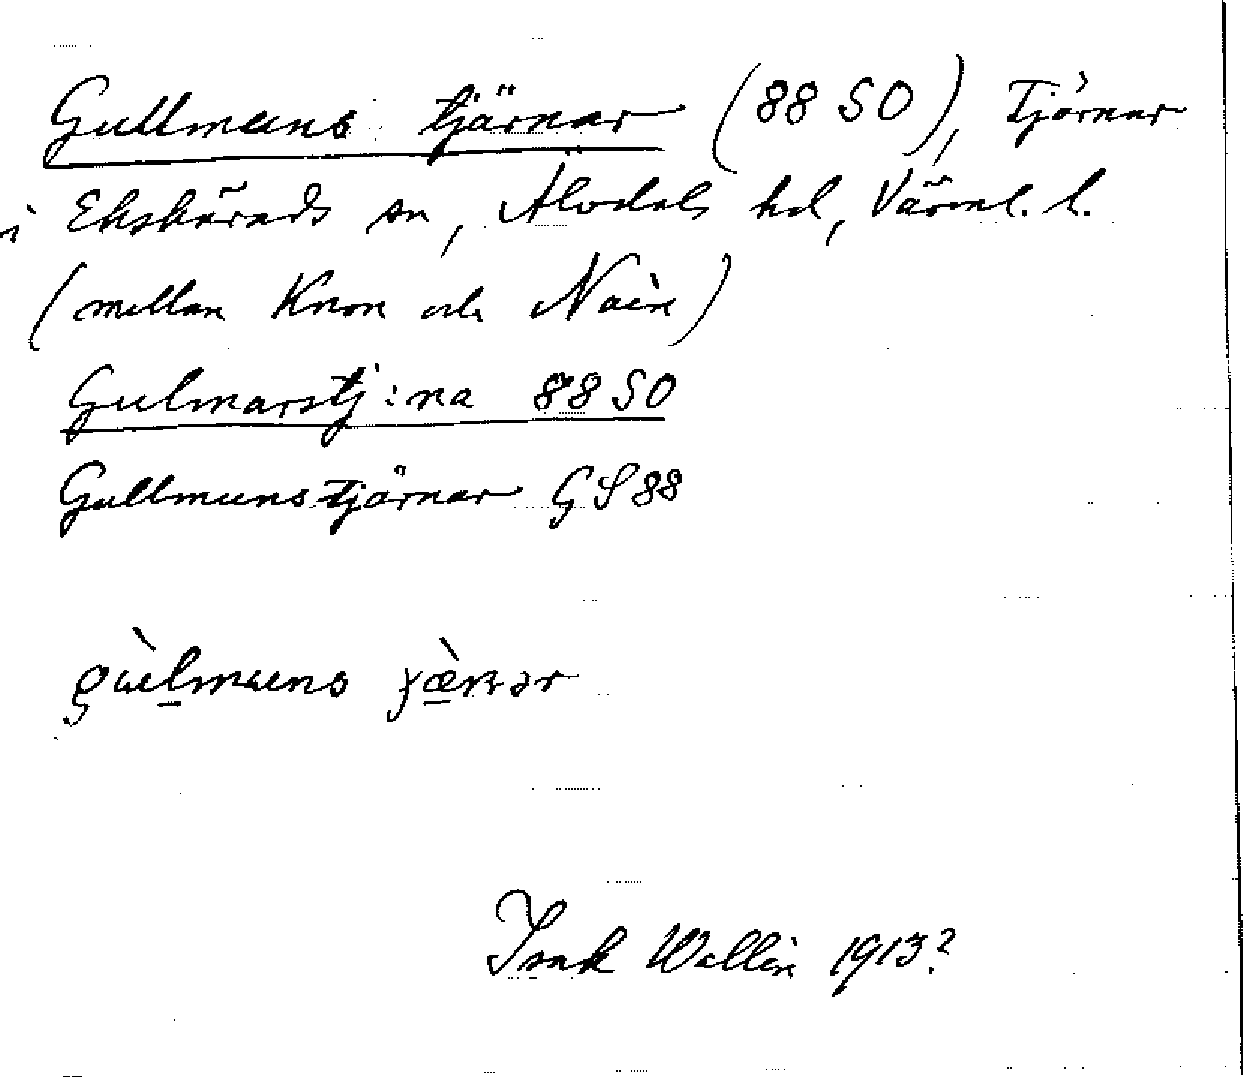 Gullmuns tjärnar (88 SO), Tjärnar
i Ekshärads sn, Älvdals hd, Värml. l.
(mellan Knon och Nain)
Gulmarstj:na 88 SO
Gullmunstjärnar GS 88
Isak Wallin 1913?